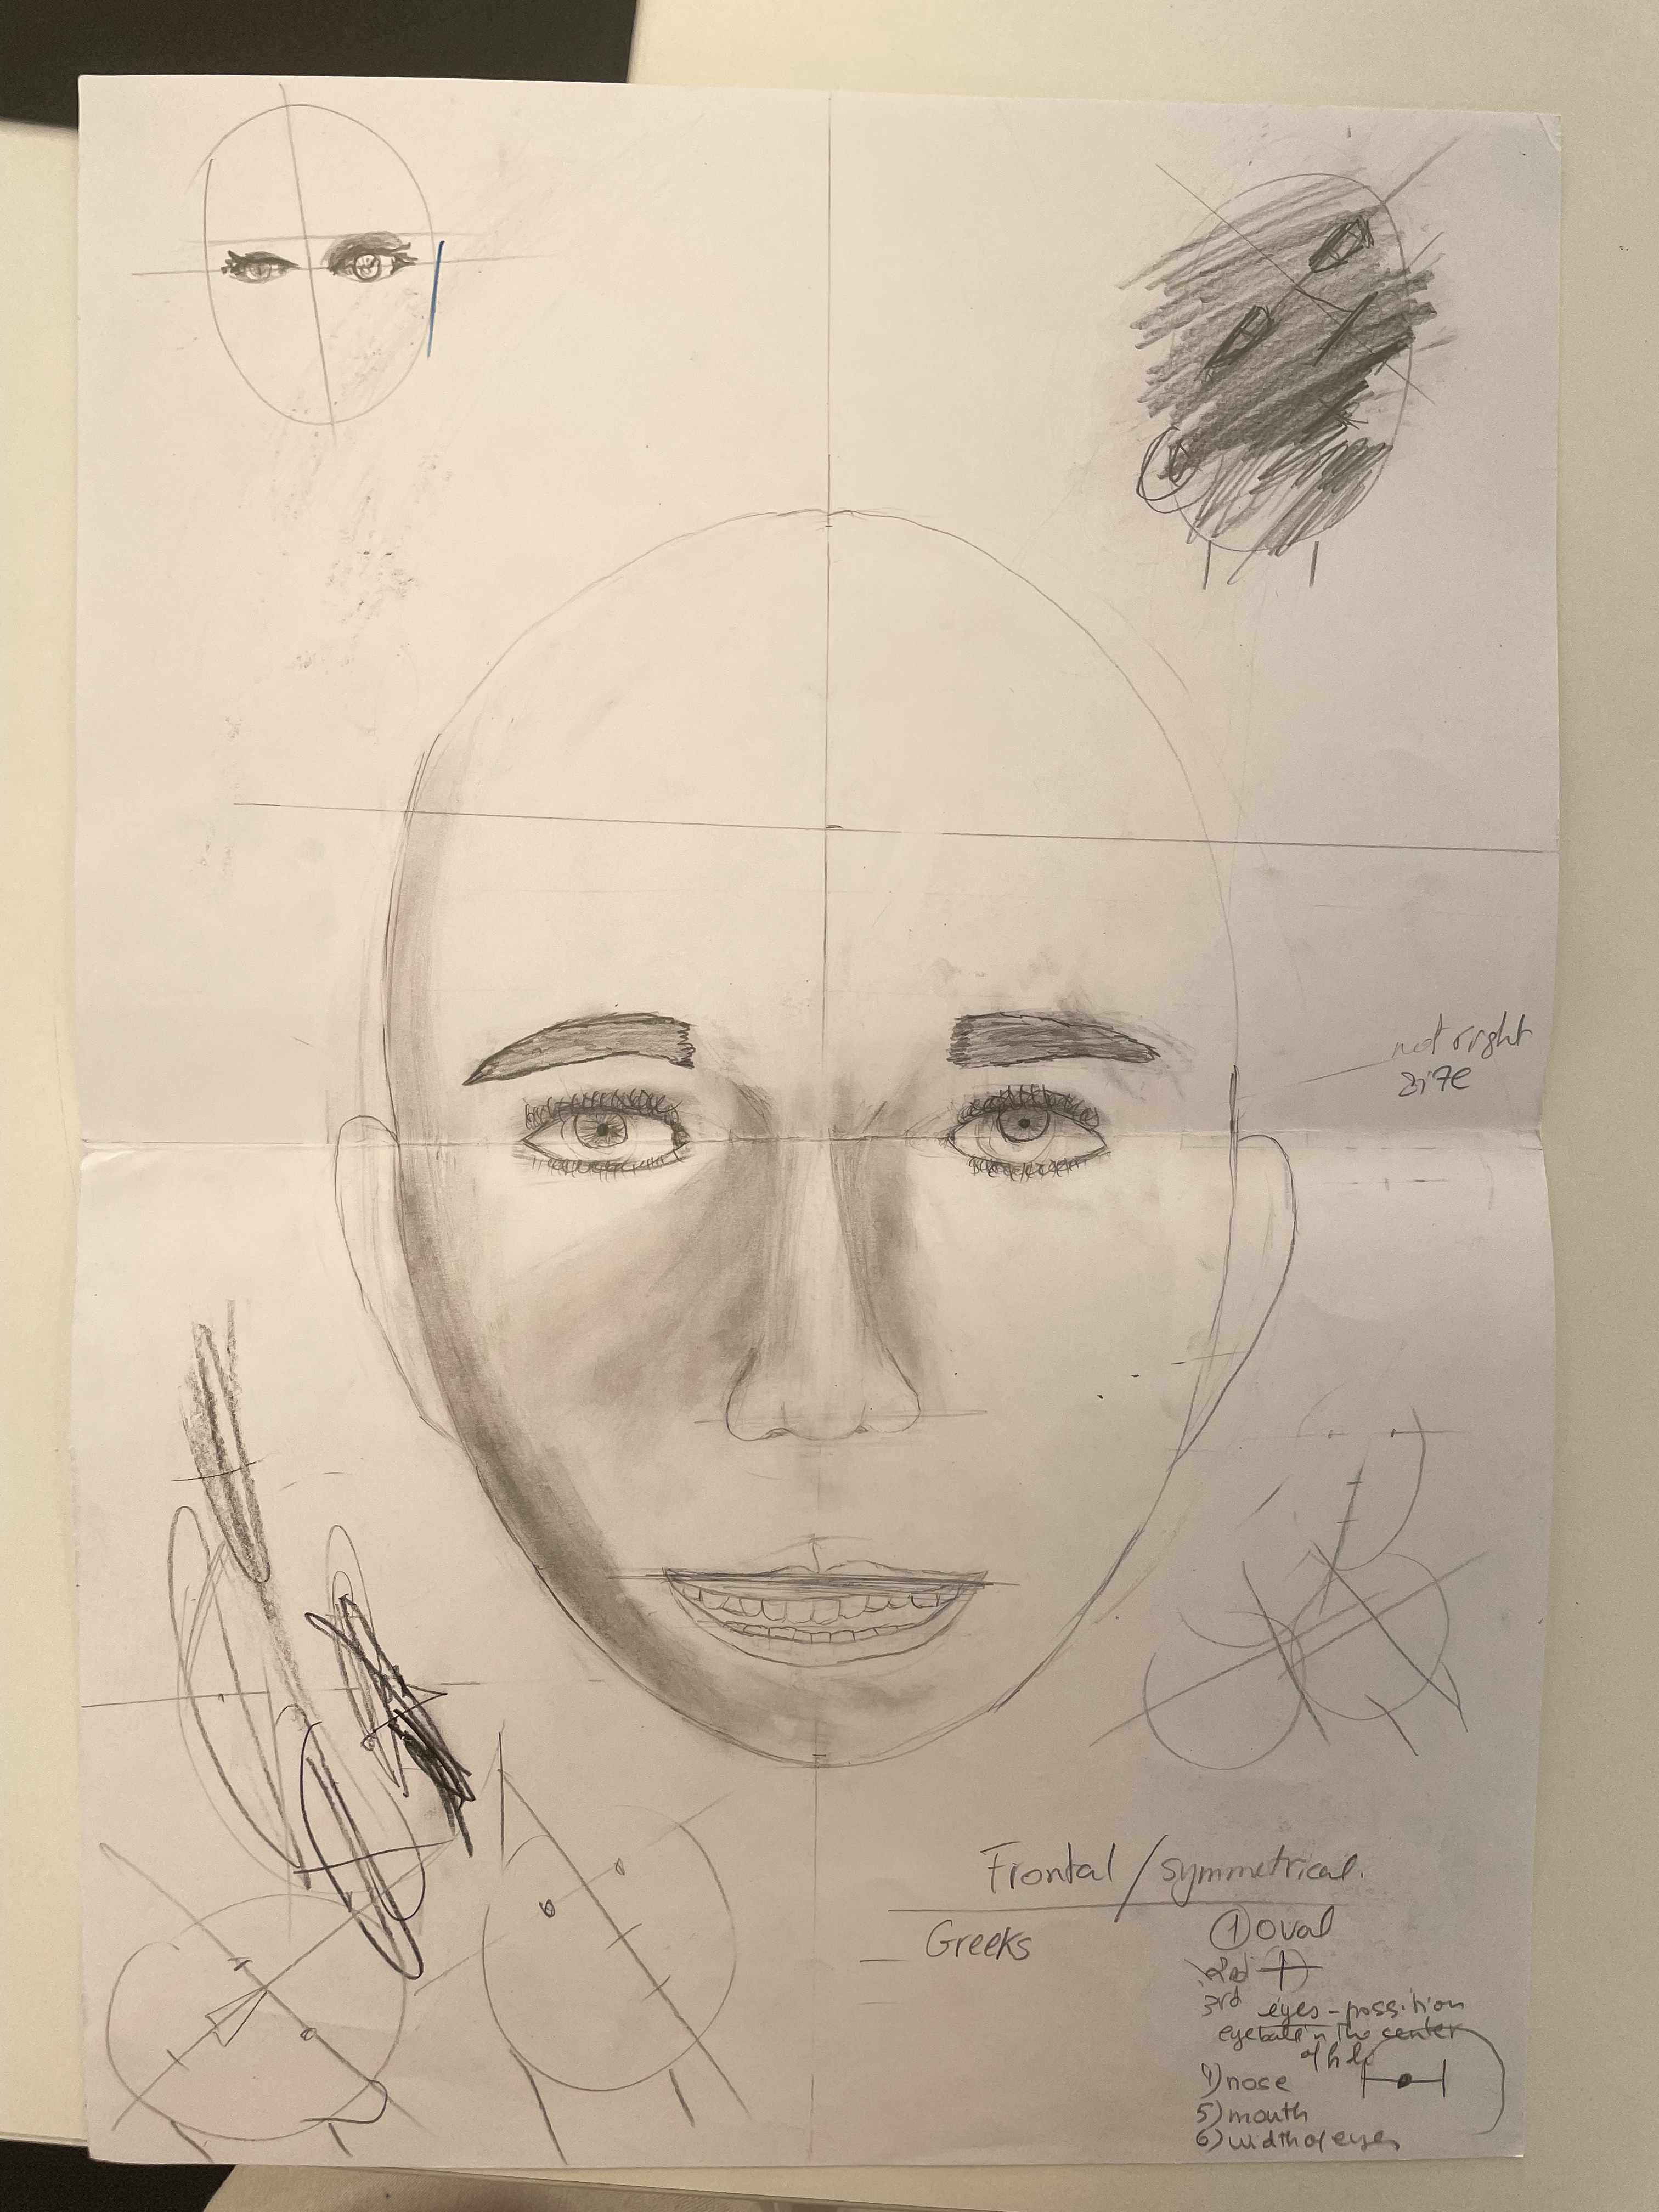 not right
size
Frontal / symmetrical.
Greeks
① oval
2nd
3rd eyes - possition
eyeball in the center
of h
4) nose
5) mouth
6) width of eyes